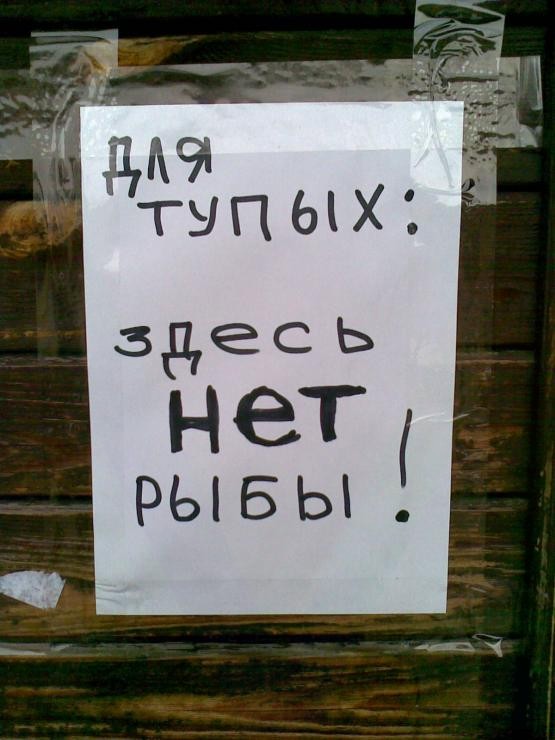 для
тупых:
здесь
нет
рыбы!